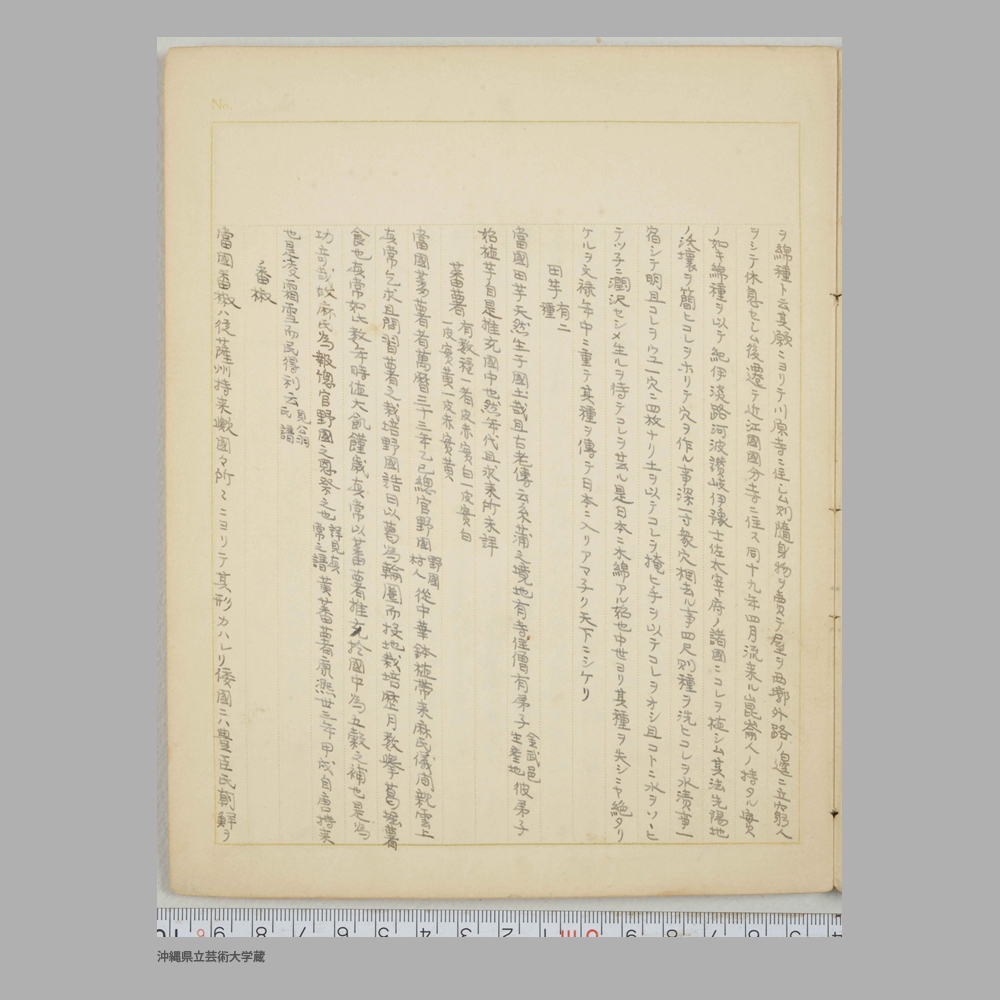 ヲ綿種ト云其願ニヨリテ川原寺ニ住シム別隨身物ヲ賣テ屋ヲ西墎外路ノ邊ニ立窮人
ヲシテ休息セシム後遷テ近江國國分寺ニ住ス同十九年四月流来ル崑崙人ノ持タル實
ノ如キ綿種ヲ以テ紀伊淡路河波讃岐伊豫土佐太宰府ノ諸國ニコレヲ植シム其法先陽地
ノ沃壤ヲ簡ヒコレヲホリテ穴ヲ作ル事深一寸衆穴相去ル事四尺別種ヲ洗ヒコレヲ水漬
宿シテ明且コレヲウユ一穴ニ四枚ナリ土ヲ以テコレヲ掩ヒ手ヲ以テコレヲオシ且コトニ水ヲソヽヒ
テツ子ニ潤沢セシメ生ルヲ待テコレヲ芸ル是日本ニ木綿アル始也中世ヨリ其種ヲ失シニヤ絶タリ
ケルヲ文禄年中ニ重テ其種ヲ傳テ日本ニ入リアマ子ク天下ニシケリ
田芋 有二種
當國田芋天然生于國土哉且古老傳云糸蒲之境地有寺住僧有弟子 金武邑生産地 彼弟子
始植芋自是推充國中也然年代且求来所未詳
蕃薯 有数種一者皮赤實白一皮實白一皮實黄一皮赤實黄
當國蕃薯者萬暦三十三年乙巳總官野國 野國村人 從中華鉢植帯来麻氏儀間親雲上
真常乞求且問習蕃薯之栽培野國誥曰以葛為輪圏而挿地栽培歴月数挙葛堀薯
食也真常如此数年時値大飢饉歳真常以蕃薯推充於國中為五穀之補也是為
功奇哉故麻氏為報總官野國之恩祭之也 詳見真常之譜 黄蕃薯者康熙卅三年甲戌自唐持来
也是凌霜雪而民得利云 見公洞氏譜
番椒
當國番椒ハ從薩州持来歟國々所々ニヨリテ其形カハレリ倭國ニハ豊臣氏朝鮮ヲ
No.
沖縄県立芸術大学蔵